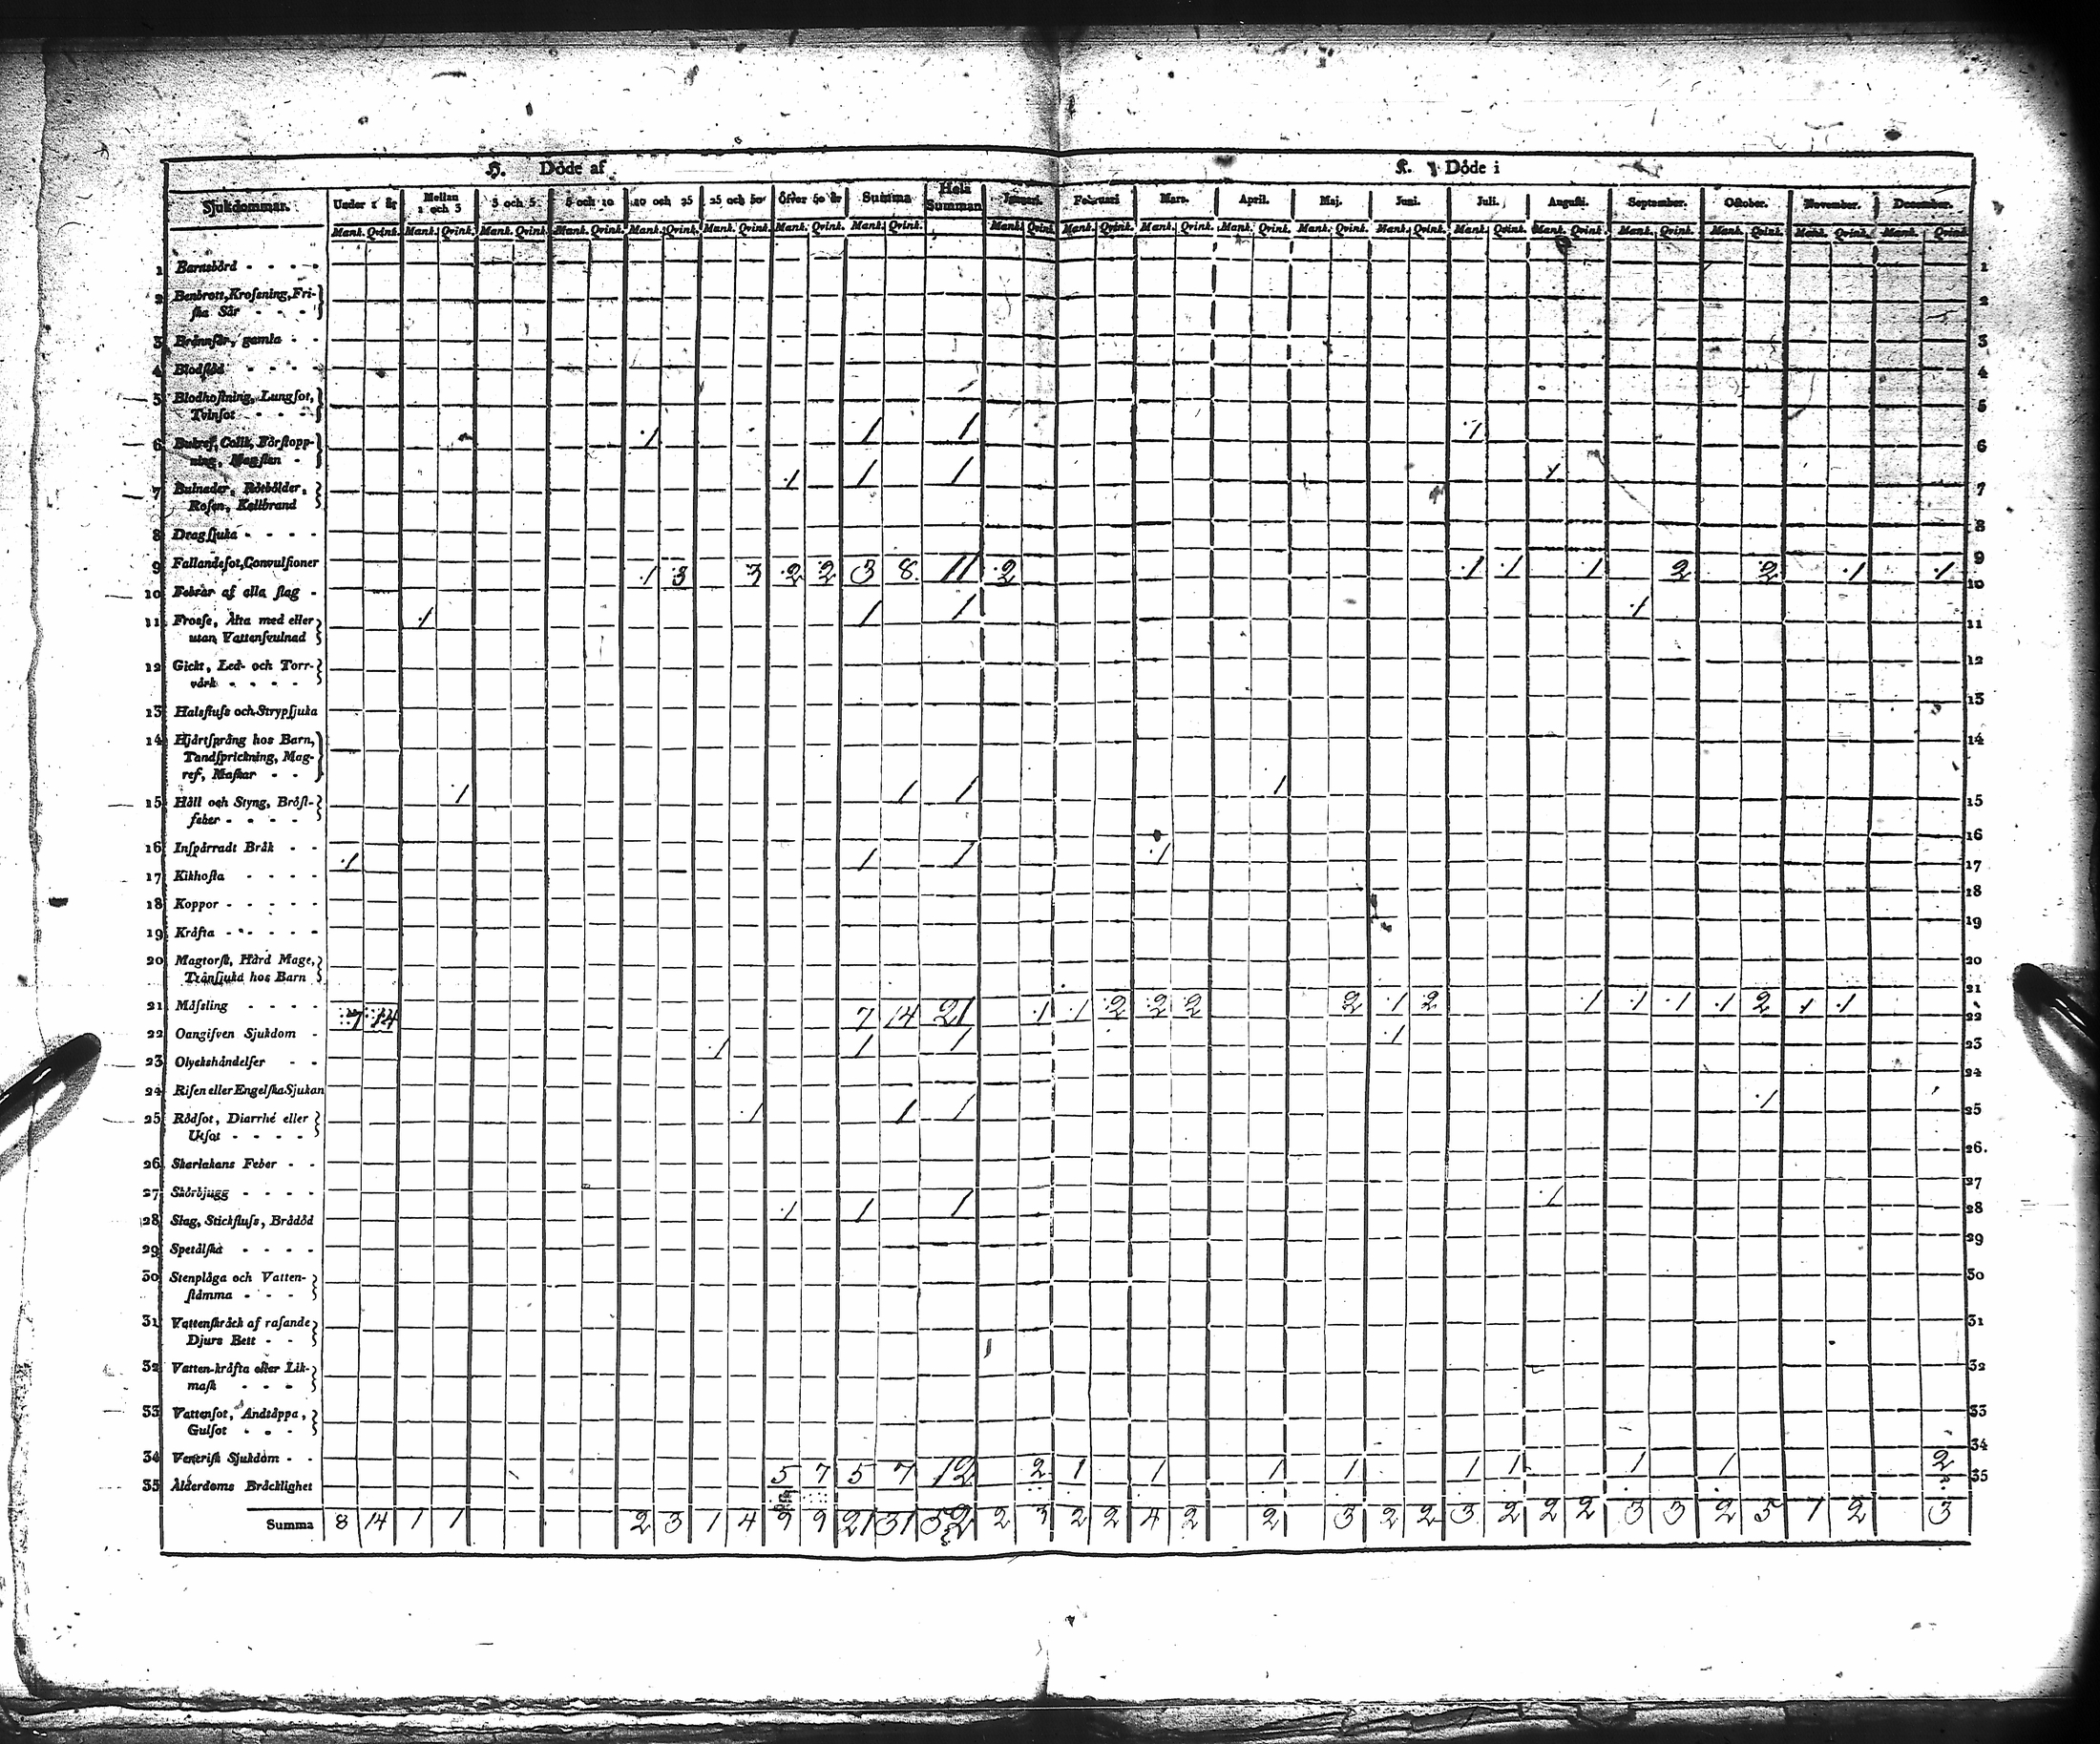 H. Döde af K. Döde i
Sjukdommar. Under 1 år Mellan 1 och 3 3 och 5 5 och 10 10 och 25 25 och 50 Öfver 50 år Summa Hela Summan Januari. Februari Mars. April. Maj. Juni. Juli. Augusti. September. October. November. December.
Mank. Qvink. Mank. Qvink. Mank. Qvink. Mank. Qvink. Mank. Qvink. Mank. Qvink. Mank. Qvink. Mank. Qvink. Mank. Qvink. Mank. Qvink. Mank. Qvink. Mank. Qvink. Mank. Qvink. Mank. Qvink. Mank. Qvink. Mank. Qvink. Mank. Qvink. Mank. Qvink. Mank. Qvink. Mank. Qvink.
1 Barnsbörd - - - - 1
2 Benbrott, Krosſning, Fri- 2
ſka Sår - - - -
3 Brännſår, gamla - - 3
4 Blodſlöd - - - - 4
5 Blodhoſtning, Lungſot, 5
Tvinſot - - - -
6 Bukref, Colik, Förſtopp- 1 1 1 1 6
ning, Magſten -
7 Bulnader, Rötbölder, 1 1 1 1 7
Roſen, Kallbrand
8 Dragſjuka - - - - 8
9 Fallandeſot, Convulſioner 9
10 Febrar af alla ſlag - 1 3 3 2 2 3 8 11 2 1 1 1 2 2 1 1 10
11 Frosſe, Älta med eller 1 1 1 1 11
utan Vattenſvulnad
12 Gickt, Led- och Torr- 12
värk - - - -
13 Halsfluſs och Strypſjuka 13
14 Hjärtſprång hos Barn, 14
Tandſprickning, Mag-
ref, Maſkar - -
15 Håll och Styng, Bröſt- 1 1 1 1 15
feber - - - -
16 Inſpärradt Bråk - - 16
17 Kikhoſta - - - - 1 1 1 1 17
18 Koppor - - - - - 18
19 Kräfta - - - - - 19
20 Magtorſk, Hård Mage, 20
Tränſjuka hos Barn
21 Måſsling - - - - 21
22 Oangifven Sjukdom - 7 14 7 14 21 1 1 2 2 2 2 1 2 1 1 1 1 2 1 1 22
23 Olyckshändelſer - - 1 1 1 1 23
24 Riſen eller Engelſka Sjukan 24
25 Rödſot, Diarrhé eller 1 1 1 1 25
Utſot - - - -
26 Skarlakans Feber - - 26.
27 Skörbjugg - - - - 27
28 Slag, Stickfluſs, Brådöd 1 1 1 1 28
29 Spetälſka - - - - 29
30 Stenplåga och Vatten- 30
ſtämma - - -
31 Vattenſkräck af raſande 31
Djurs Bett - -
32 Vatten-kräfta eller Lik- 32
maſk - - -
33 Vattenſot, Andtäppa, 33
Gulſot - - -
34 Veneriſk Sjukdom - - 34
35 Ålderdoms Bräcklighet 5 7 5 7 12 2 1 1 1 1 1 1 1 1 2 35
Summa 8 14 1 1 2 3 1 4 9 9 21 31 52 2 3 2 2 4 2 2 3 2 2 3 2 2 2 3 3 2 5 1 2 3